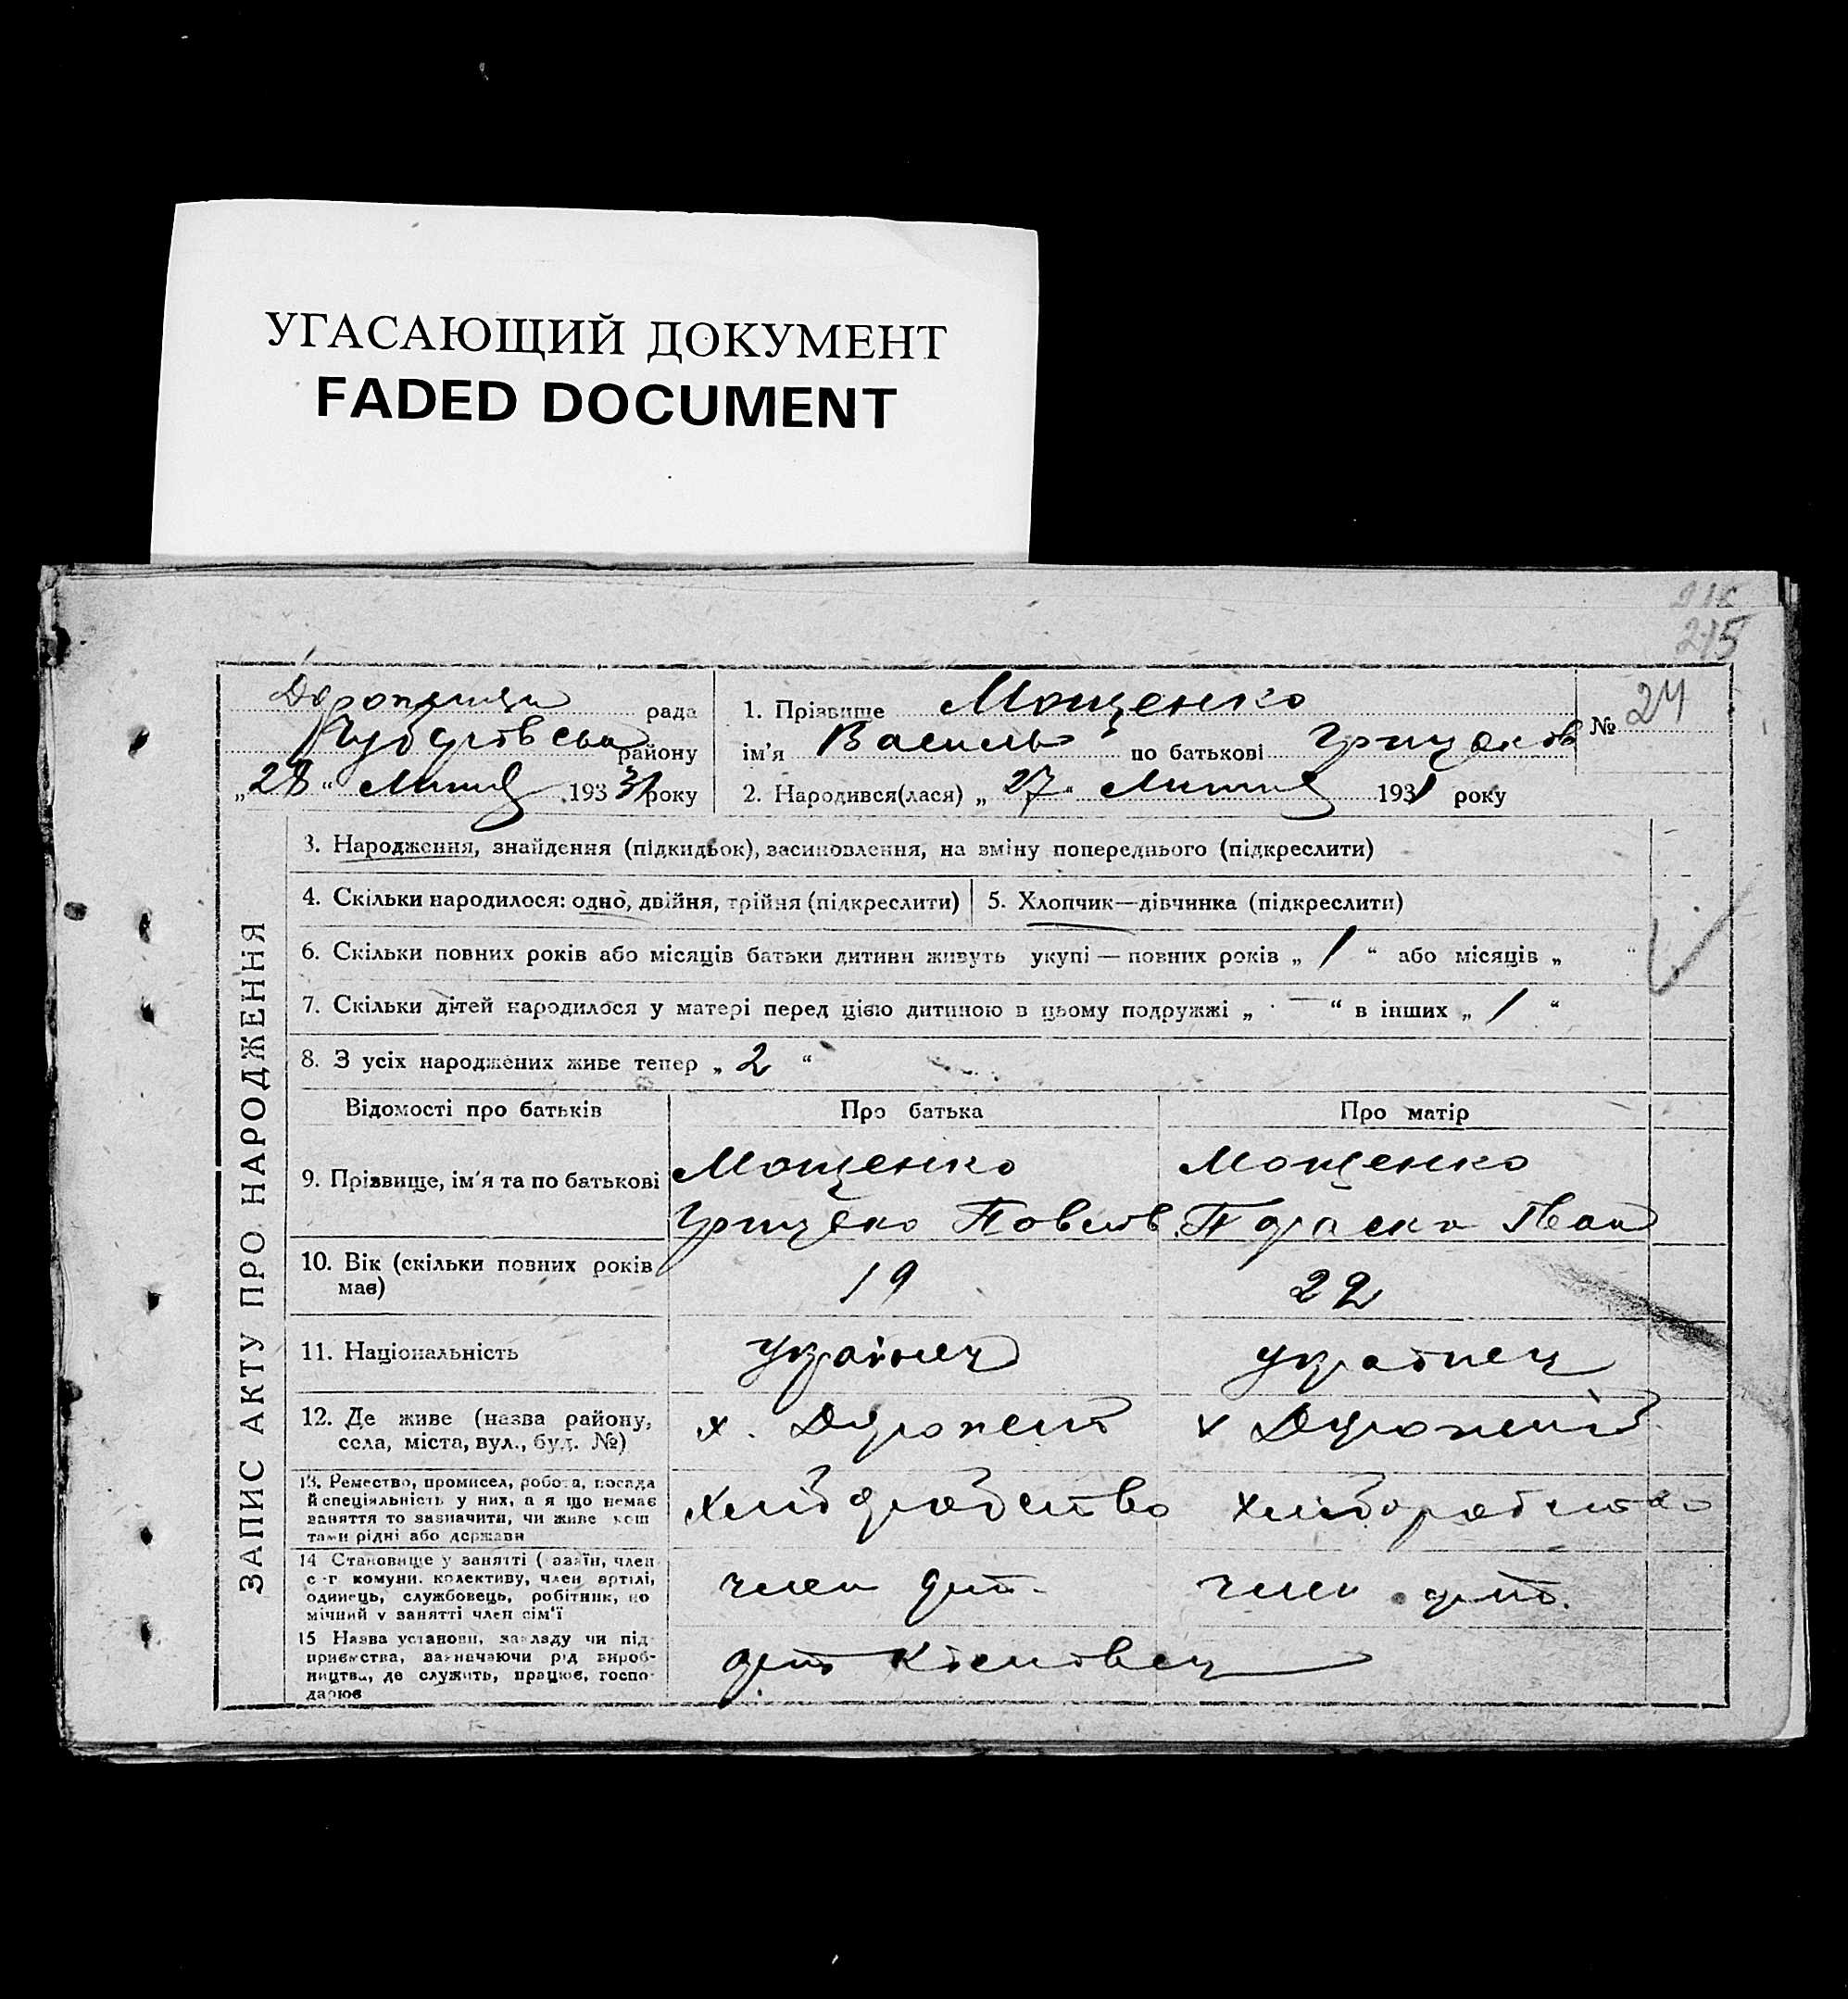 УГАСАЮЩИЙ ДОКУМЕНТ
FADED DOCUMENT
215
рада
району
„28“ Липня 1931 року
1. Прізвище Мощенко
ім'я Василь по батькові Грицьков
2. Народився(лася) „27“ Липня 1931 року
№ 24
ЗАПИС АКТУ ПРО НАРОДЖЕННЯ
3. Народження, знайдення (підкидьок), засиновлення, на зміну попереднього (підкреслити)
4. Скільки народилося: одно, двійня, трійня (підкреслити)
5. Хлопчик—дівчинка (підкреслити)
6. Скільки повних років або місяців батьки дитини живуть укупі — повних років „ 1 “ або місяців „ “
7. Скільки дітей народилося у матері перед цією дитиною в цьому подружжі „ — “ в інших „ 1 “
8. З усіх народжених живе тепер „ 2 “
Відомості про батьків
Про батька
Про матір
9. Прізвище, ім'я та по батькові
Мощенко
Грицько Повлов
Мощенко
Параска Іван
10. Вік (скільки повних років
має)
19
22
11. Національність
українец
українец
12. Де живе (назва району,
села, міста, вул., буд. №)
х.
х
13. Ремество, промисел, робота, посада
й спеціяльність у них, а я що немає
заняття то зазначити, чи живе кош
тами рідні або держави
хліборобство
хліборобство
14 Становище у занятті ( азяїн, член
с-г комуни. колективу, член артілі,
одинець, службовець, робітник, по
мічний у занятті член сім'ї
член арт.
член арт.
15 Назва установи, закладу чи під
приємства, зазначаючи рід вироб-
ництва, де служить, працює, госпо-
дарює
арт